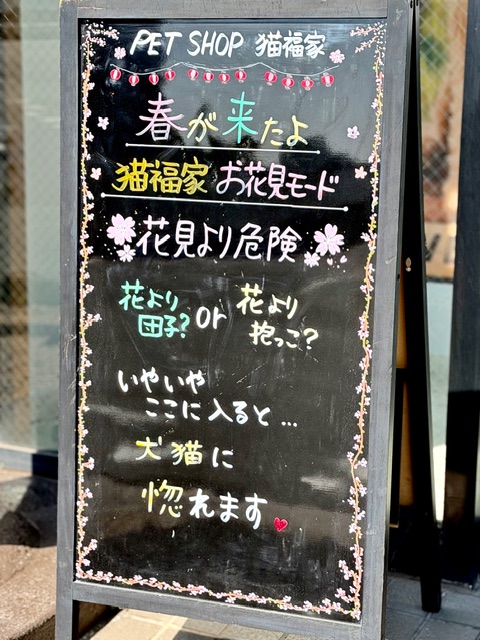 PET SHOP 猫福家
春が来たよ
猫福家 お花見モード
花見より危険
花より 団子? or 花より 抱っこ?
いやいや
ここに入ると…
犬猫に
惚れます